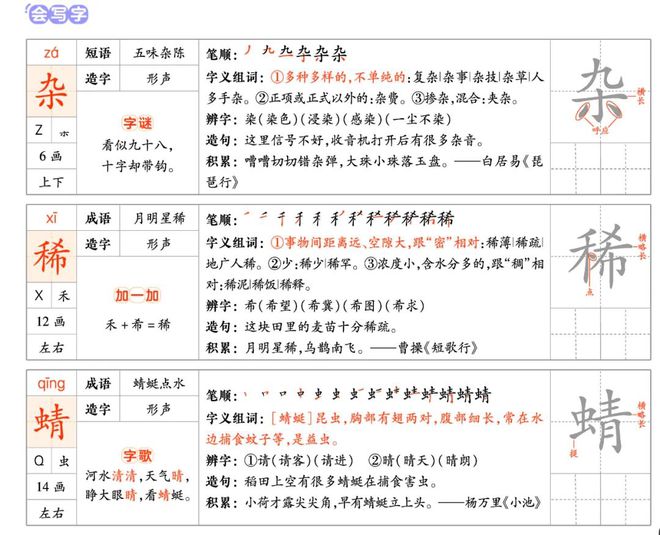 会写字
zá 短语 五味杂陈
杂 造字 形声
Z 
6画
上下
字谜
看似九十八,
十字却带钩。
笔顺:
字义组词:①多种多样的,不单纯的:复杂|杂事|杂技|杂草|人
多手杂。②正项或正式以外的:杂费。③掺杂,混合:夹杂。
辨字:染(染色)(浸染)(感染)(一尘不染)
造句:这里信号不好,收音机打开后有很多杂音。
积累:嘈嘈切切错杂弹,大珠小珠落玉盘。——白居易《琵
琶行》
杂
横长
呼应
xī 成语 月明星稀
稀 造字 形声
X 禾
12画
左右
加一加
禾+希=稀
笔顺:
字义组词:①事物间距离远、空隙大,跟“密”相对:稀薄|稀疏|
地广人稀。②少:稀少|稀罕。③浓度小,含水分多的,跟“稠”相
对:稀泥|稀饭|稀释。
辨字:希(希望)(希冀)(希图)(希求)
造句:这块田里的麦苗十分稀疏。
积累:月明星稀,乌鹊南飞。——曹操《短歌行》
稀
横略长
点
qīng 成语 蜻蜓点水
蜻 造字 形声
Q 虫
14画
左右
字歌
河水清清,天气晴,
睁大眼睛,看蜻蜓。
笔顺:
字义组词:[蜻蜓]昆虫,胸部有翅两对,腹部细长,常在水
边捕食蚊子等,是益虫。
辨字:①请(请客)(请进) ②晴(晴天)(晴朗)
造句:稻田上空有很多蜻蜓在捕食害虫。
积累:小荷才露尖尖角,早有蜻蜓立上头。——杨万里《小池》
蜻
横略长
提